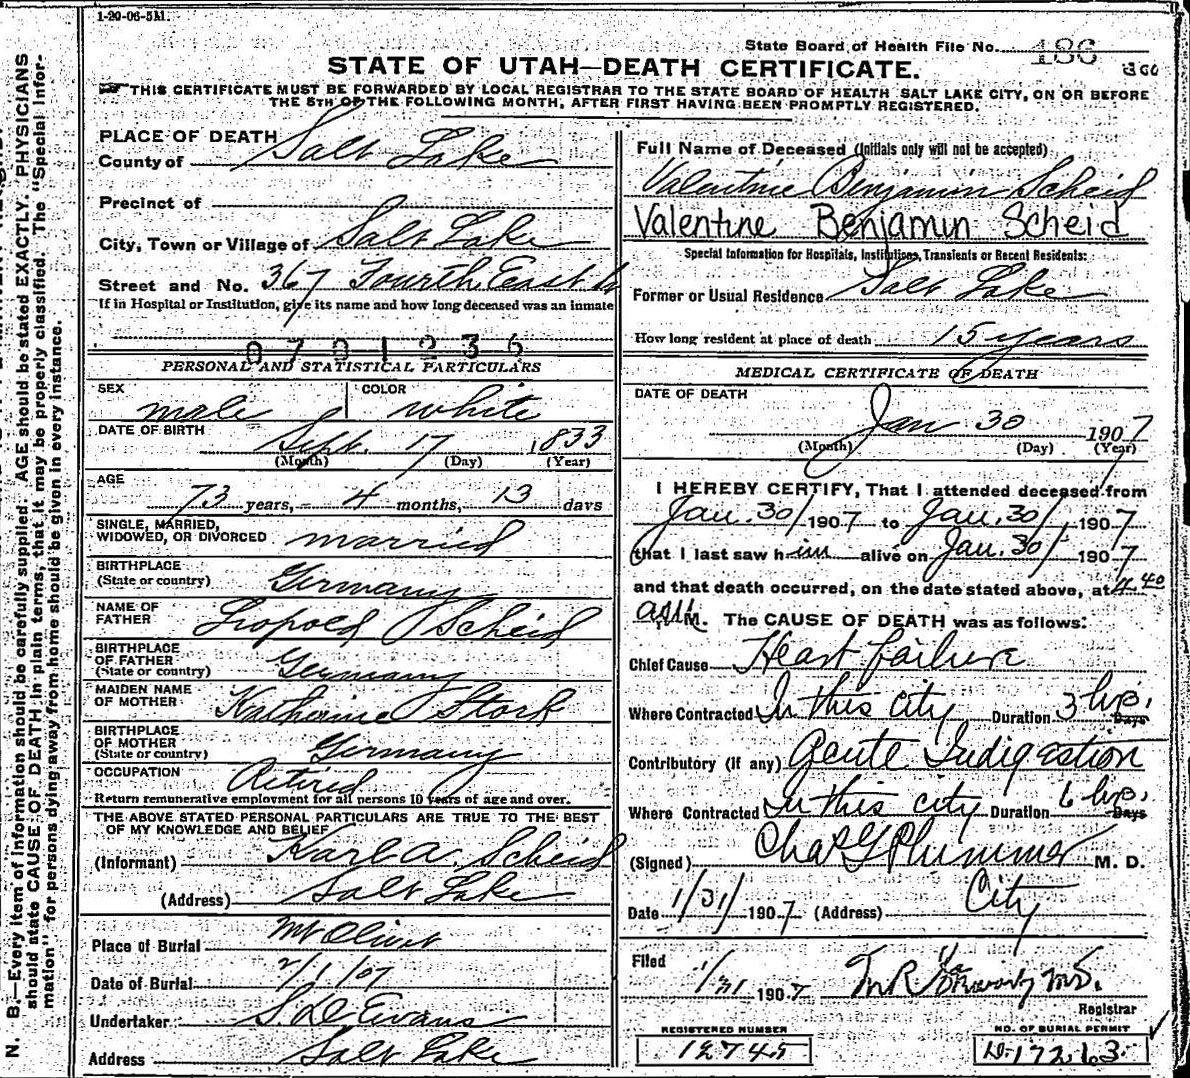 1-20-06-5M.
State Board of Health File No. 486
STATE OF UTAH—DEATH CERTIFICATE.
THIS CERTIFICATE MUST BE FORWARDED BY LOCAL REGISTRAR TO THE STATE BOARD OF HEALTH SALT LAKE CITY, ON OR BEFORE
THE 5TH OF THE FOLLOWING MONTH, AFTER FIRST HAVING BEEN PROMPTLY REGISTERED.
N. B.—Every item of information should be carefully supplied. AGE should be stated EXACTLY. PHYSICIANS
should state CAUSE OF DEATH in plain terms, that it may be properly classified. The "Special Infor-
mation" for persons dying away from home should be given in every instance.
PLACE OF DEATH
County of Salt Lake
Precinct of
City, Town or Village of Salt Lake
Street and No. 367 Fourth East
If in Hospital or Institution, give its name and how long deceased was an inmate
0701236
PERSONAL AND STATISTICAL PARTICULARS
SEX male COLOR white
DATE OF BIRTH Sept. 17 1833
(Month) (Day) (Year)
AGE
73 years, 4 months, 13 days
SINGLE, MARRIED,
WIDOWED, OR DIVORCED married
BIRTHPLACE
(State or country) Germany
NAME OF
FATHER Leopold Scheid
BIRTHPLACE
OF FATHER
(State or country) Germany
MAIDEN NAME
OF MOTHER Katharine Stork
BIRTHPLACE
OF MOTHER
(State or country) Germany
OCCUPATION Retired
Return remunerative employment for all persons 10 years of age and over.
THE ABOVE STATED PERSONAL PARTICULARS ARE TRUE TO THE BEST
OF MY KNOWLEDGE AND BELIEF
(Informant) Karl A. Scheid
(Address) Salt Lake
Place of Burial Mt Olivet
Date of Burial 2/1/07
Undertaker S. D. Evans
Address Salt Lake
Full Name of Deceased (Initials only will not be accepted)
Valentine Benjamin Scheid
Valentine Benjamin Scheid
Special Information for Hospitals, Institutions, Transients or Recent Residents:
Former or Usual Residence Salt Lake
How long resident at place of death 15 years
MEDICAL CERTIFICATE OF DEATH
DATE OF DEATH
Jan 30 1907
(Month) (Day) (Year)
I HEREBY CERTIFY, That I attended deceased from
Jan. 30/ 1907 to Jan. 30/, 1907
that I last saw him alive on Jan. 30/ 1907
and that death occurred, on the date stated above, at 11.40
a M. The CAUSE OF DEATH was as follows:
Chief Cause Heart failure
Where Contracted In this city Duration 3 hrs. Days
Contributory (if any) Acute Indigestion
Where Contracted In this city Duration 6 hrs. Days
(Signed) Chas G Plummer M. D.
Date 1/31/ 1907 (Address) City
Filed
1/31 1907 M.D.
Registrar
REGISTERED NUMBER
12745
NO. OF BURIAL PERMIT
D-17263